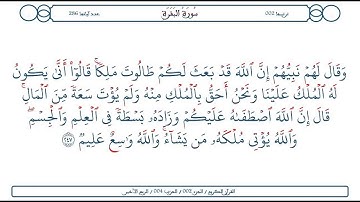 ترتيبها 002 سُورَةُ البَقَرَةِ عدد آياتها 286
وَقَالَ لَهُمْ نَبِيُّهُمْ إِنَّ ٱللَّهَ قَدْ بَعَثَ لَكُمْ طَالُوتَ مَلِكًا ۚ قَالُوٓا۟ أَنَّىٰ يَكُونُ
لَهُ ٱلْمُلْكُ عَلَيْنَا وَنَحْنُ أَحَقُّ بِٱلْمُلْكِ مِنْهُ وَلَمْ يُؤْتَ سَعَةً مِّنَ ٱلْمَالِ ۚ
قَالَ إِنَّ ٱللَّهَ ٱصْطَفَىٰهُ عَلَيْكُمْ وَزَادَهُۥ بَسْطَةً فِى ٱلْعِلْمِ وَٱلْجِسْمِ ۖ
وَٱللَّهُ يُؤْتِى مُلْكَهُۥ مَن يَشَآءُ ۚ وَٱللَّهُ وَٰسِعٌ عَلِيمٌ ٢٤٧
القرآن الكريم / الجزء 002 / الحزب 004 /